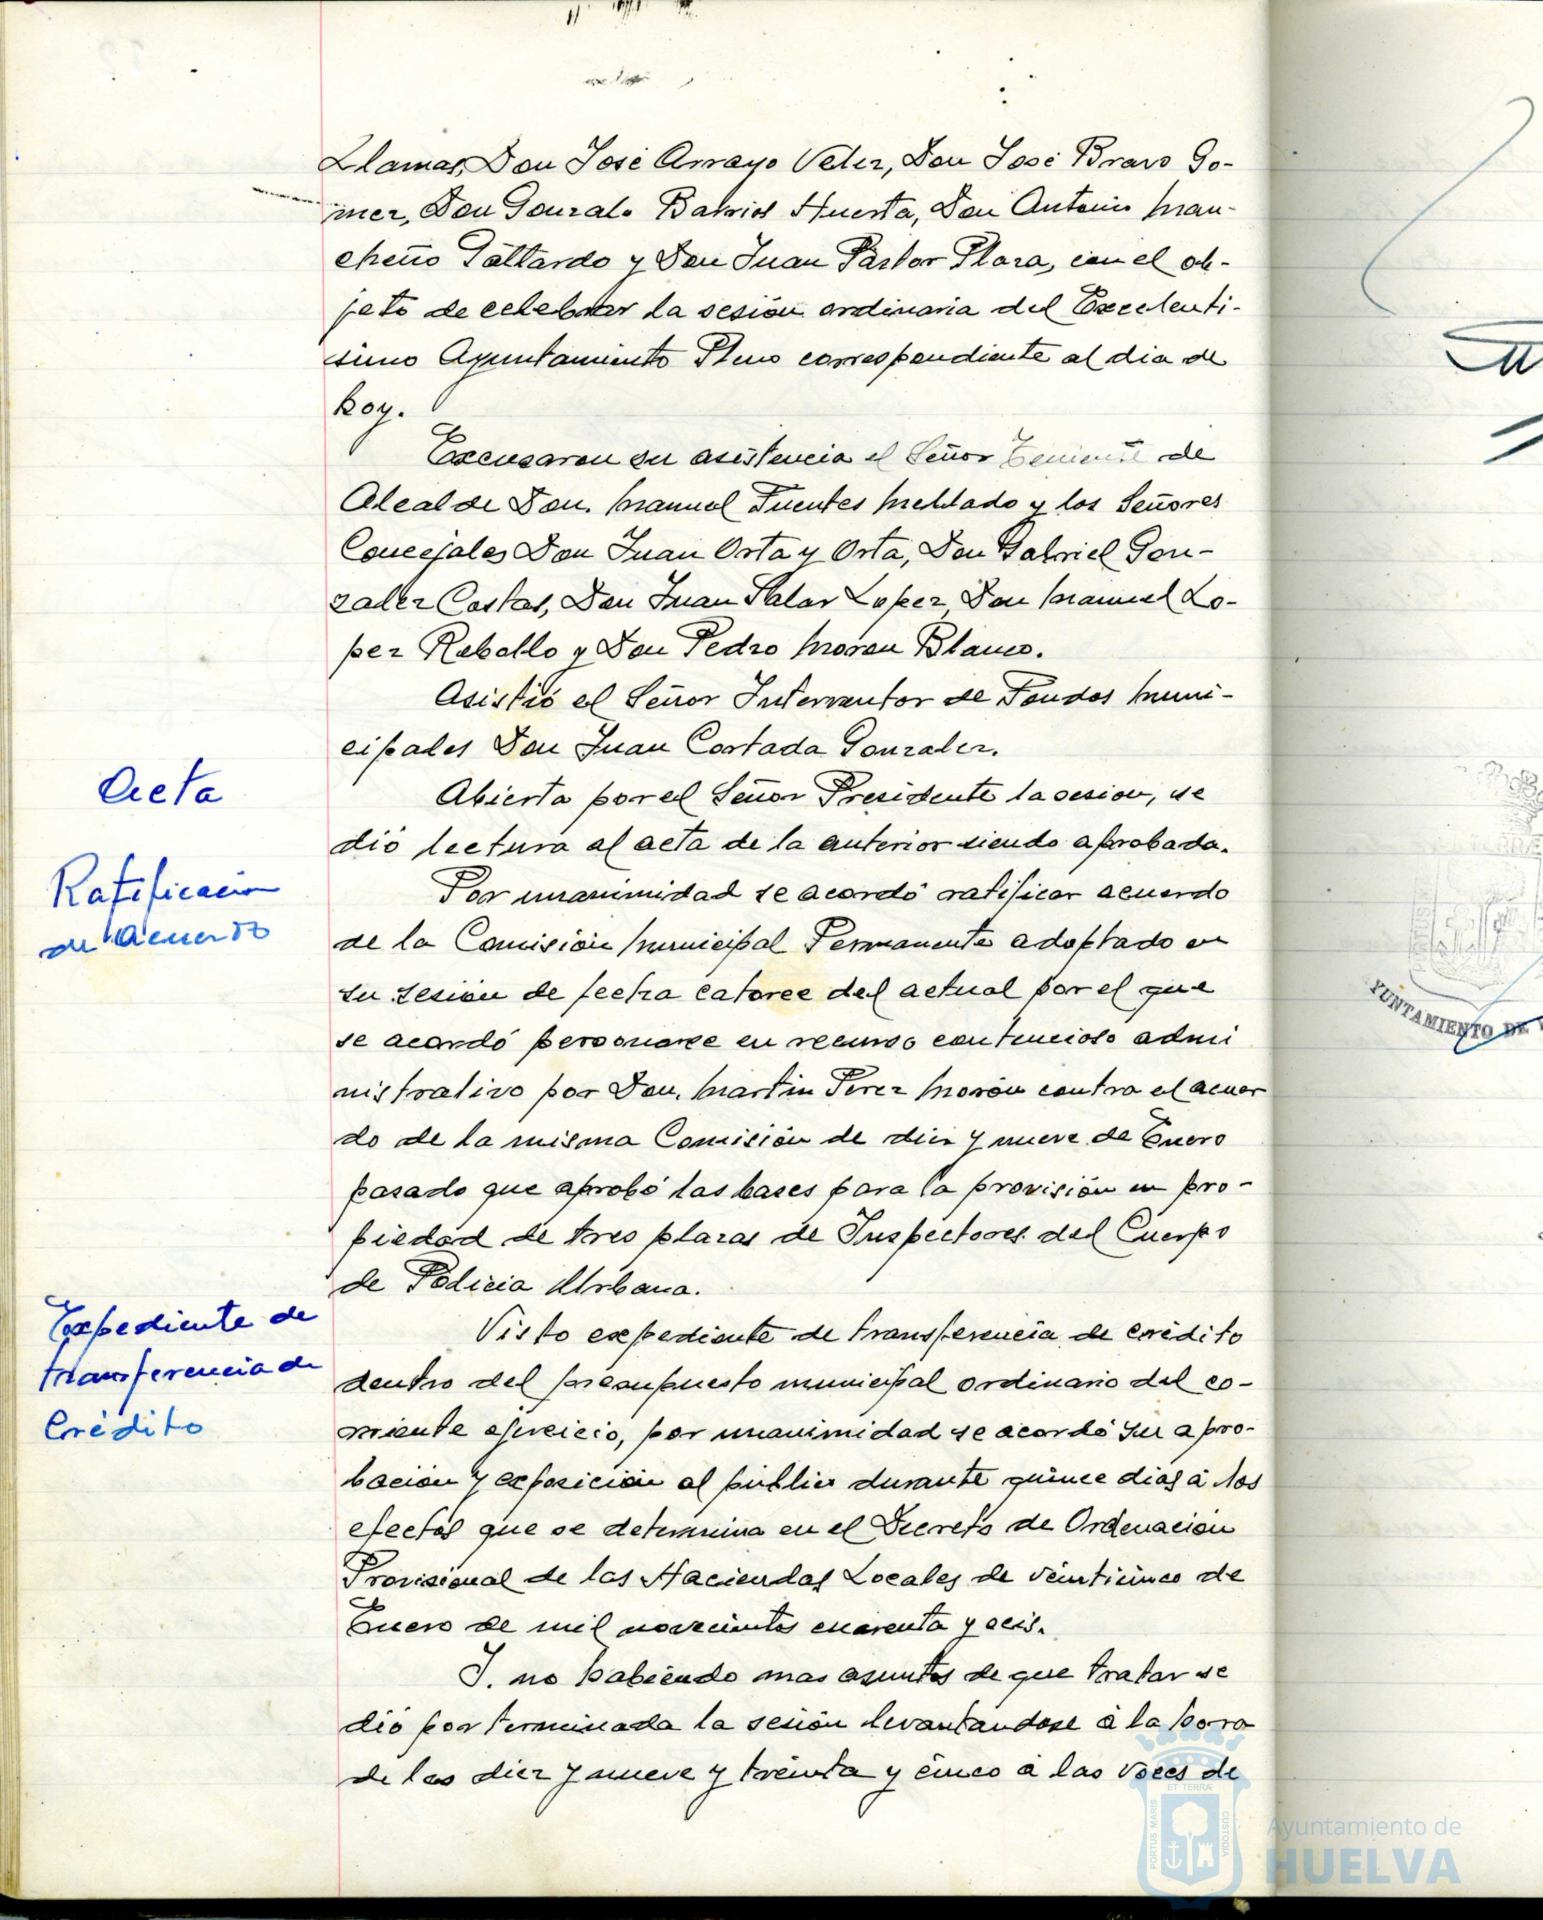 Llamas, Don José Arrayo Velez, Don José Bravo Go-
mez, Don Gonzalo Barrios Huerta, Don Antonio Man-
cheño Gallardo y Don Juan Pastor Plaza, con el ob-
jeto de celebrar la sesión ordinaria del Excelenti-
simo Ayuntamiento Pleno correspondiente al dia de
hoy.
Excusaron su asistencia el Señor Teniente de
Alcalde Don Manuel Fuentes Mellado y los Señores
Concejales Don Juan Orta y Orta, Don Gabriel Gon-
zalez Costas, Don Juan Salar Lopez, Don Manuel Lo-
pez Rebollo y Don Pedro Moron Blanco.
Asistió el Señor Interventor de Fondos Muni-
cipales Don Juan Cortada Gonzalez.
Acta
Abierta por el Señor Presidente la sesion, se
dió lectura al acta de la anterior siendo aprobada.
Ratificación
de acuerdo
Por unanimidad se acordó ratificar acuerdo
de la Comisión Municipal Permanente adoptado en
su sesión de fecha catorce del actual por el que
se acordó personarse en recurso contencioso admi
nistrativo por Don Martin Perez Morón contra el acuer
do de la misma Comisión de diez y nueve de Enero
pasado que aprobó las bases para la provisión en pro-
piedad de tres plazas de Inspectores del Cuerpo
de Policia Urbana.
Expediente de
transferencia de
Crédito
Visto expediente de transferencia de crédito
dentro del presupuesto municipal ordinario del co-
rriente ejercicio, por unanimidad se acordó su apro-
bación y exposición al público durante quince dias á los
efectos que se determina en el Decreto de Ordenación
Provisional de las Haciendas Locales de veinticinco de
Enero de mil novecientos cuarenta y seis.
Y. no habiendo mas asuntos de que tratar se
dió por terminada la sesión levantandose á la hora
de las diez y nueve y treinta y cinco á las voces de
YUNTAMIENTO DE
PORTUS MARIS
ET TERRÆ
CUSTODIA
Ayuntamiento de
HUELVA